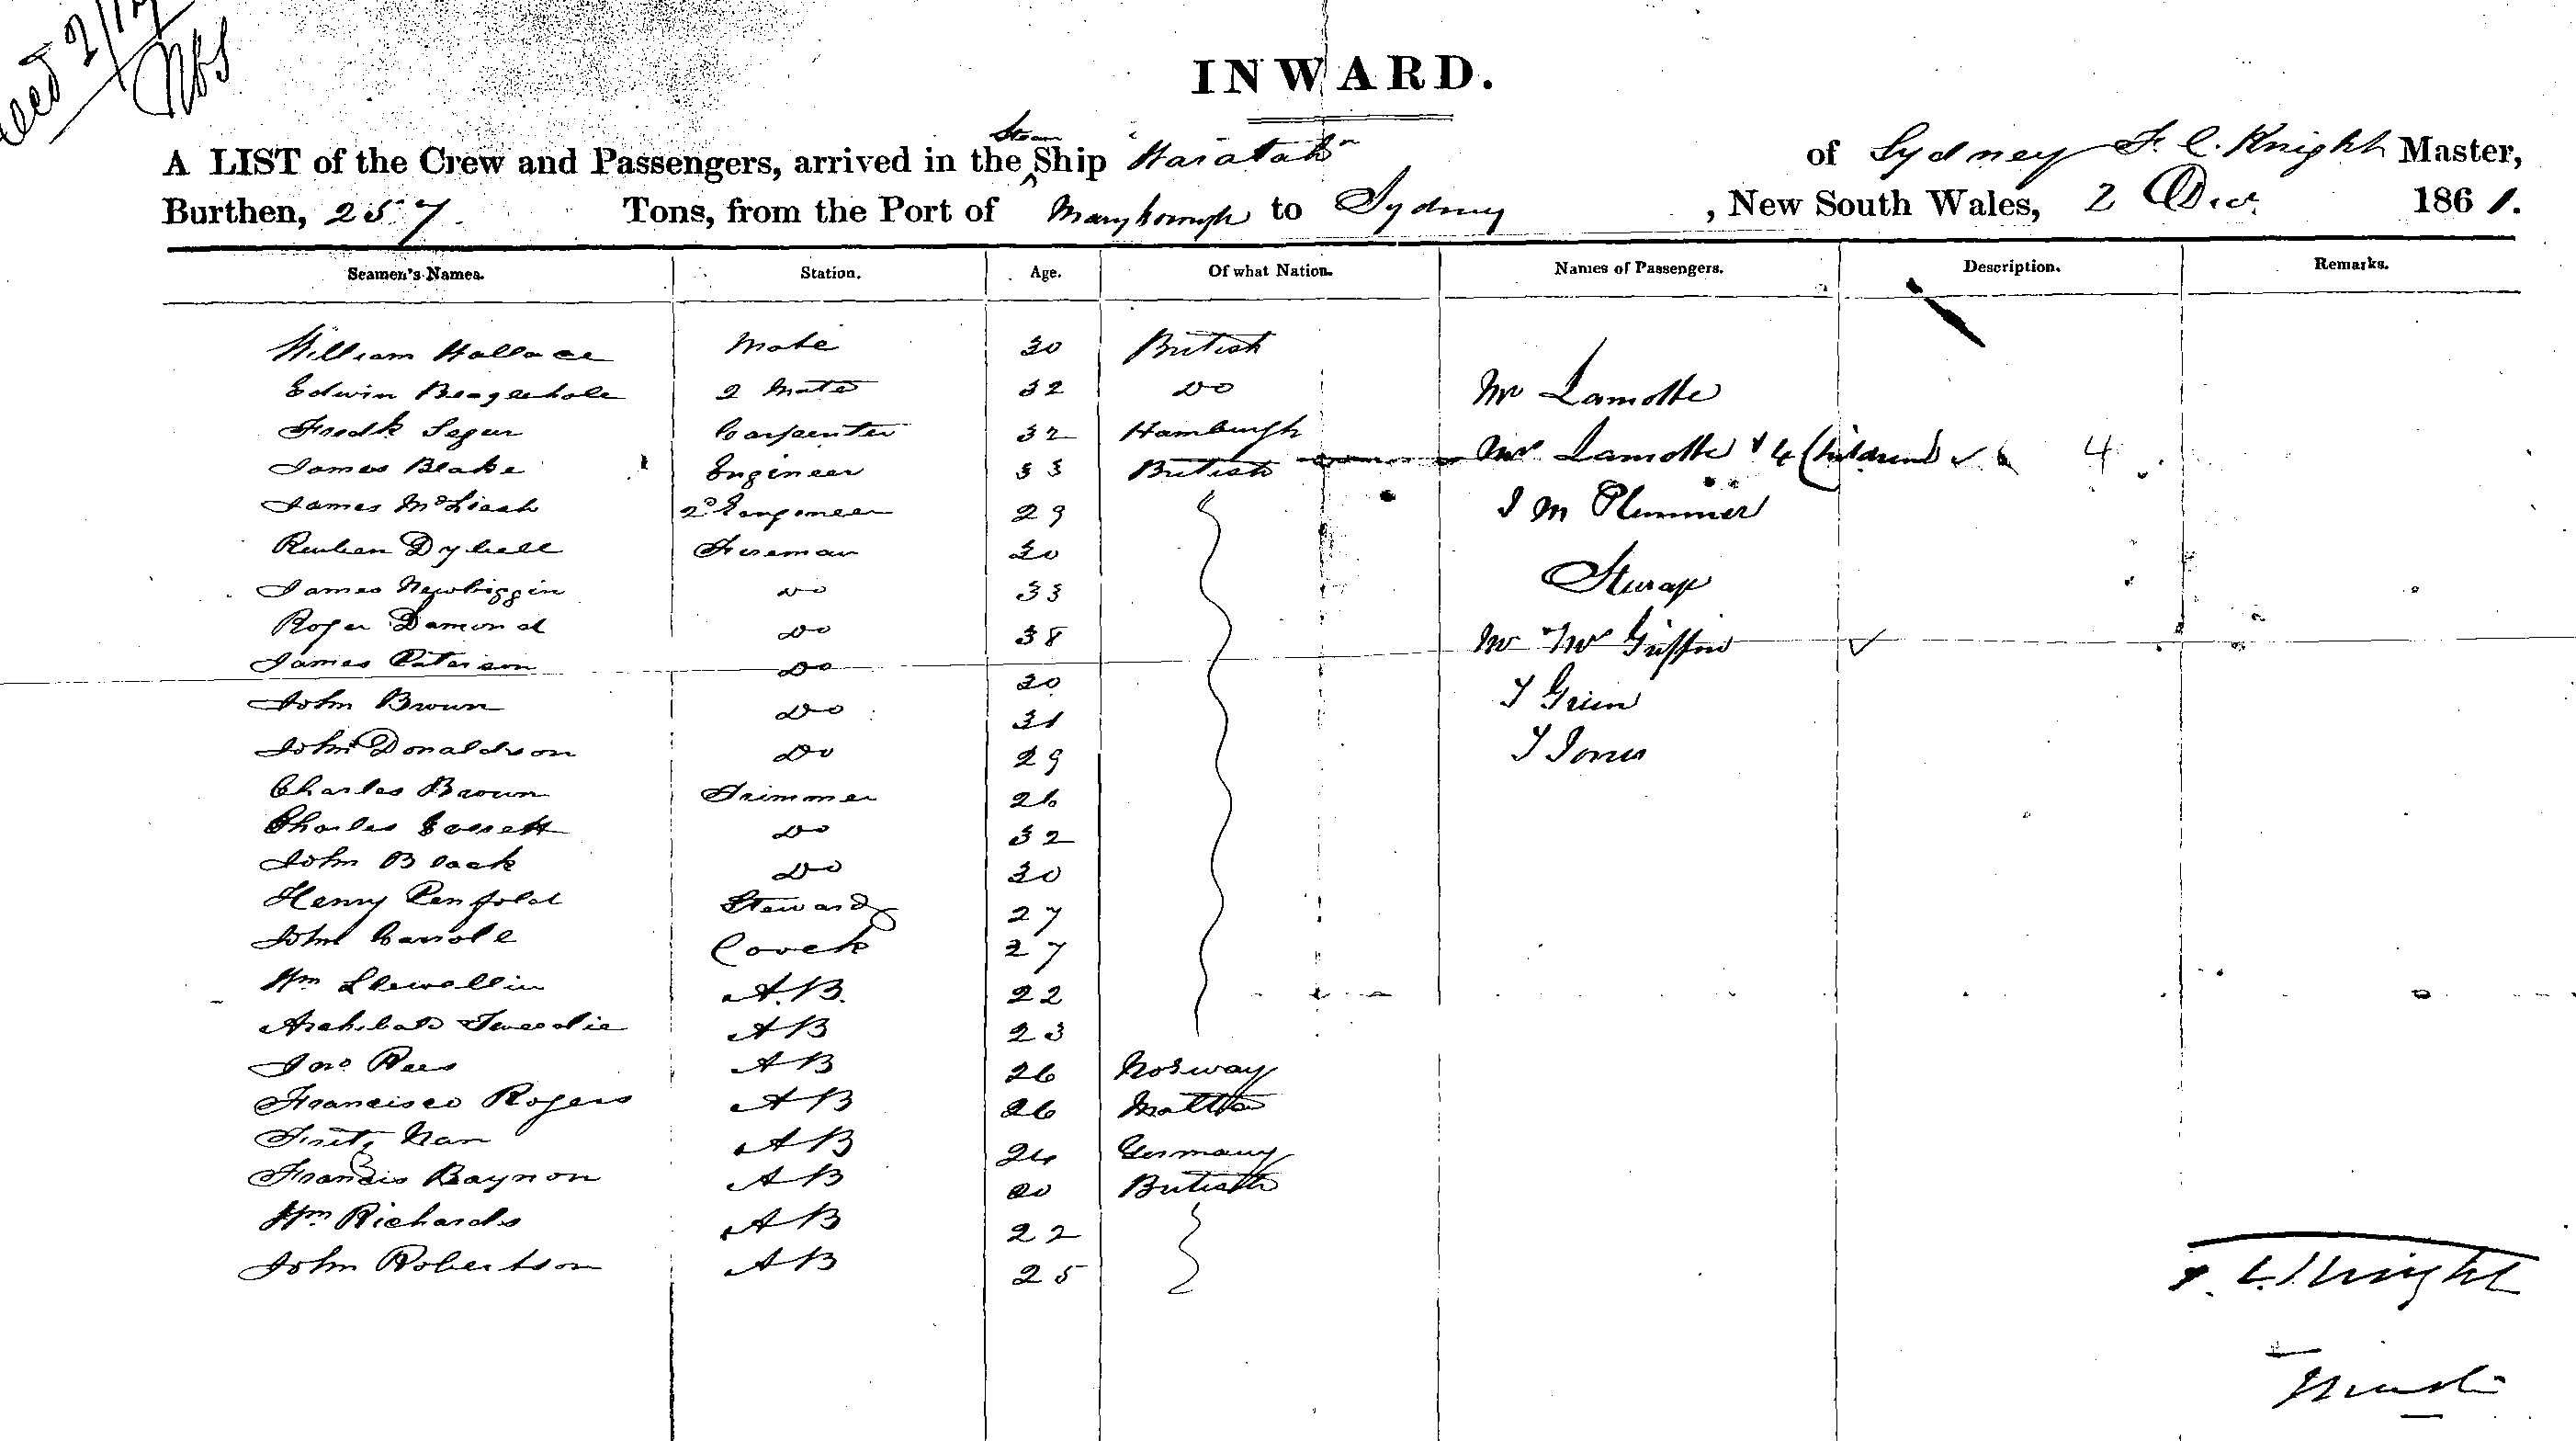 INWARD.
A LIST of the Crew and Passengers, arrived in the Steam Ship "Waratah" of Sydney F. C. Knight Master,
Burthen, 257 Tons, from the Port of Maryborough to Sydney, New South Wales, 2 Dec. 1861.
Seamen's Names. Station. Age. Of what Nation. Names of Passengers. Description. Remarks.
William Wallace Mate 30 British
Edwin Beaglehole 2 Mate 32 Do Mr Lamotte
Fredk Segur Carpenter 32 Hamburgh
James Blake Engineer 33 British Mrs Lamotte & 4 Children 4
James McLiesh 2d Engineer 29 J M Plummer
Reuben Dybell Fireman 30
James Newbiggin Do 33 Steerage
Roger Damond Do 38 Mr Mrs Griffin
James Paterson Do 30
John Brown Do 31 T Green
John Donaldson Do 29 T Jones
Charles Brown Trimmer 26
Charles Do 32
John Black Do 30
Henry Penfold Steward 27
John Carrole Coock 27
Wm Llewellin A.B. 22
Archibald Tweedie AB 23
Jno Rees AB 26 Norway
Francisco Rogers AB 26 Maltta
Fritz Nan AB 24 Germany
Francis Baynon AB 20 British
Wm Richards AB 22
John Robertson AB 25
F. C. Knight
Master